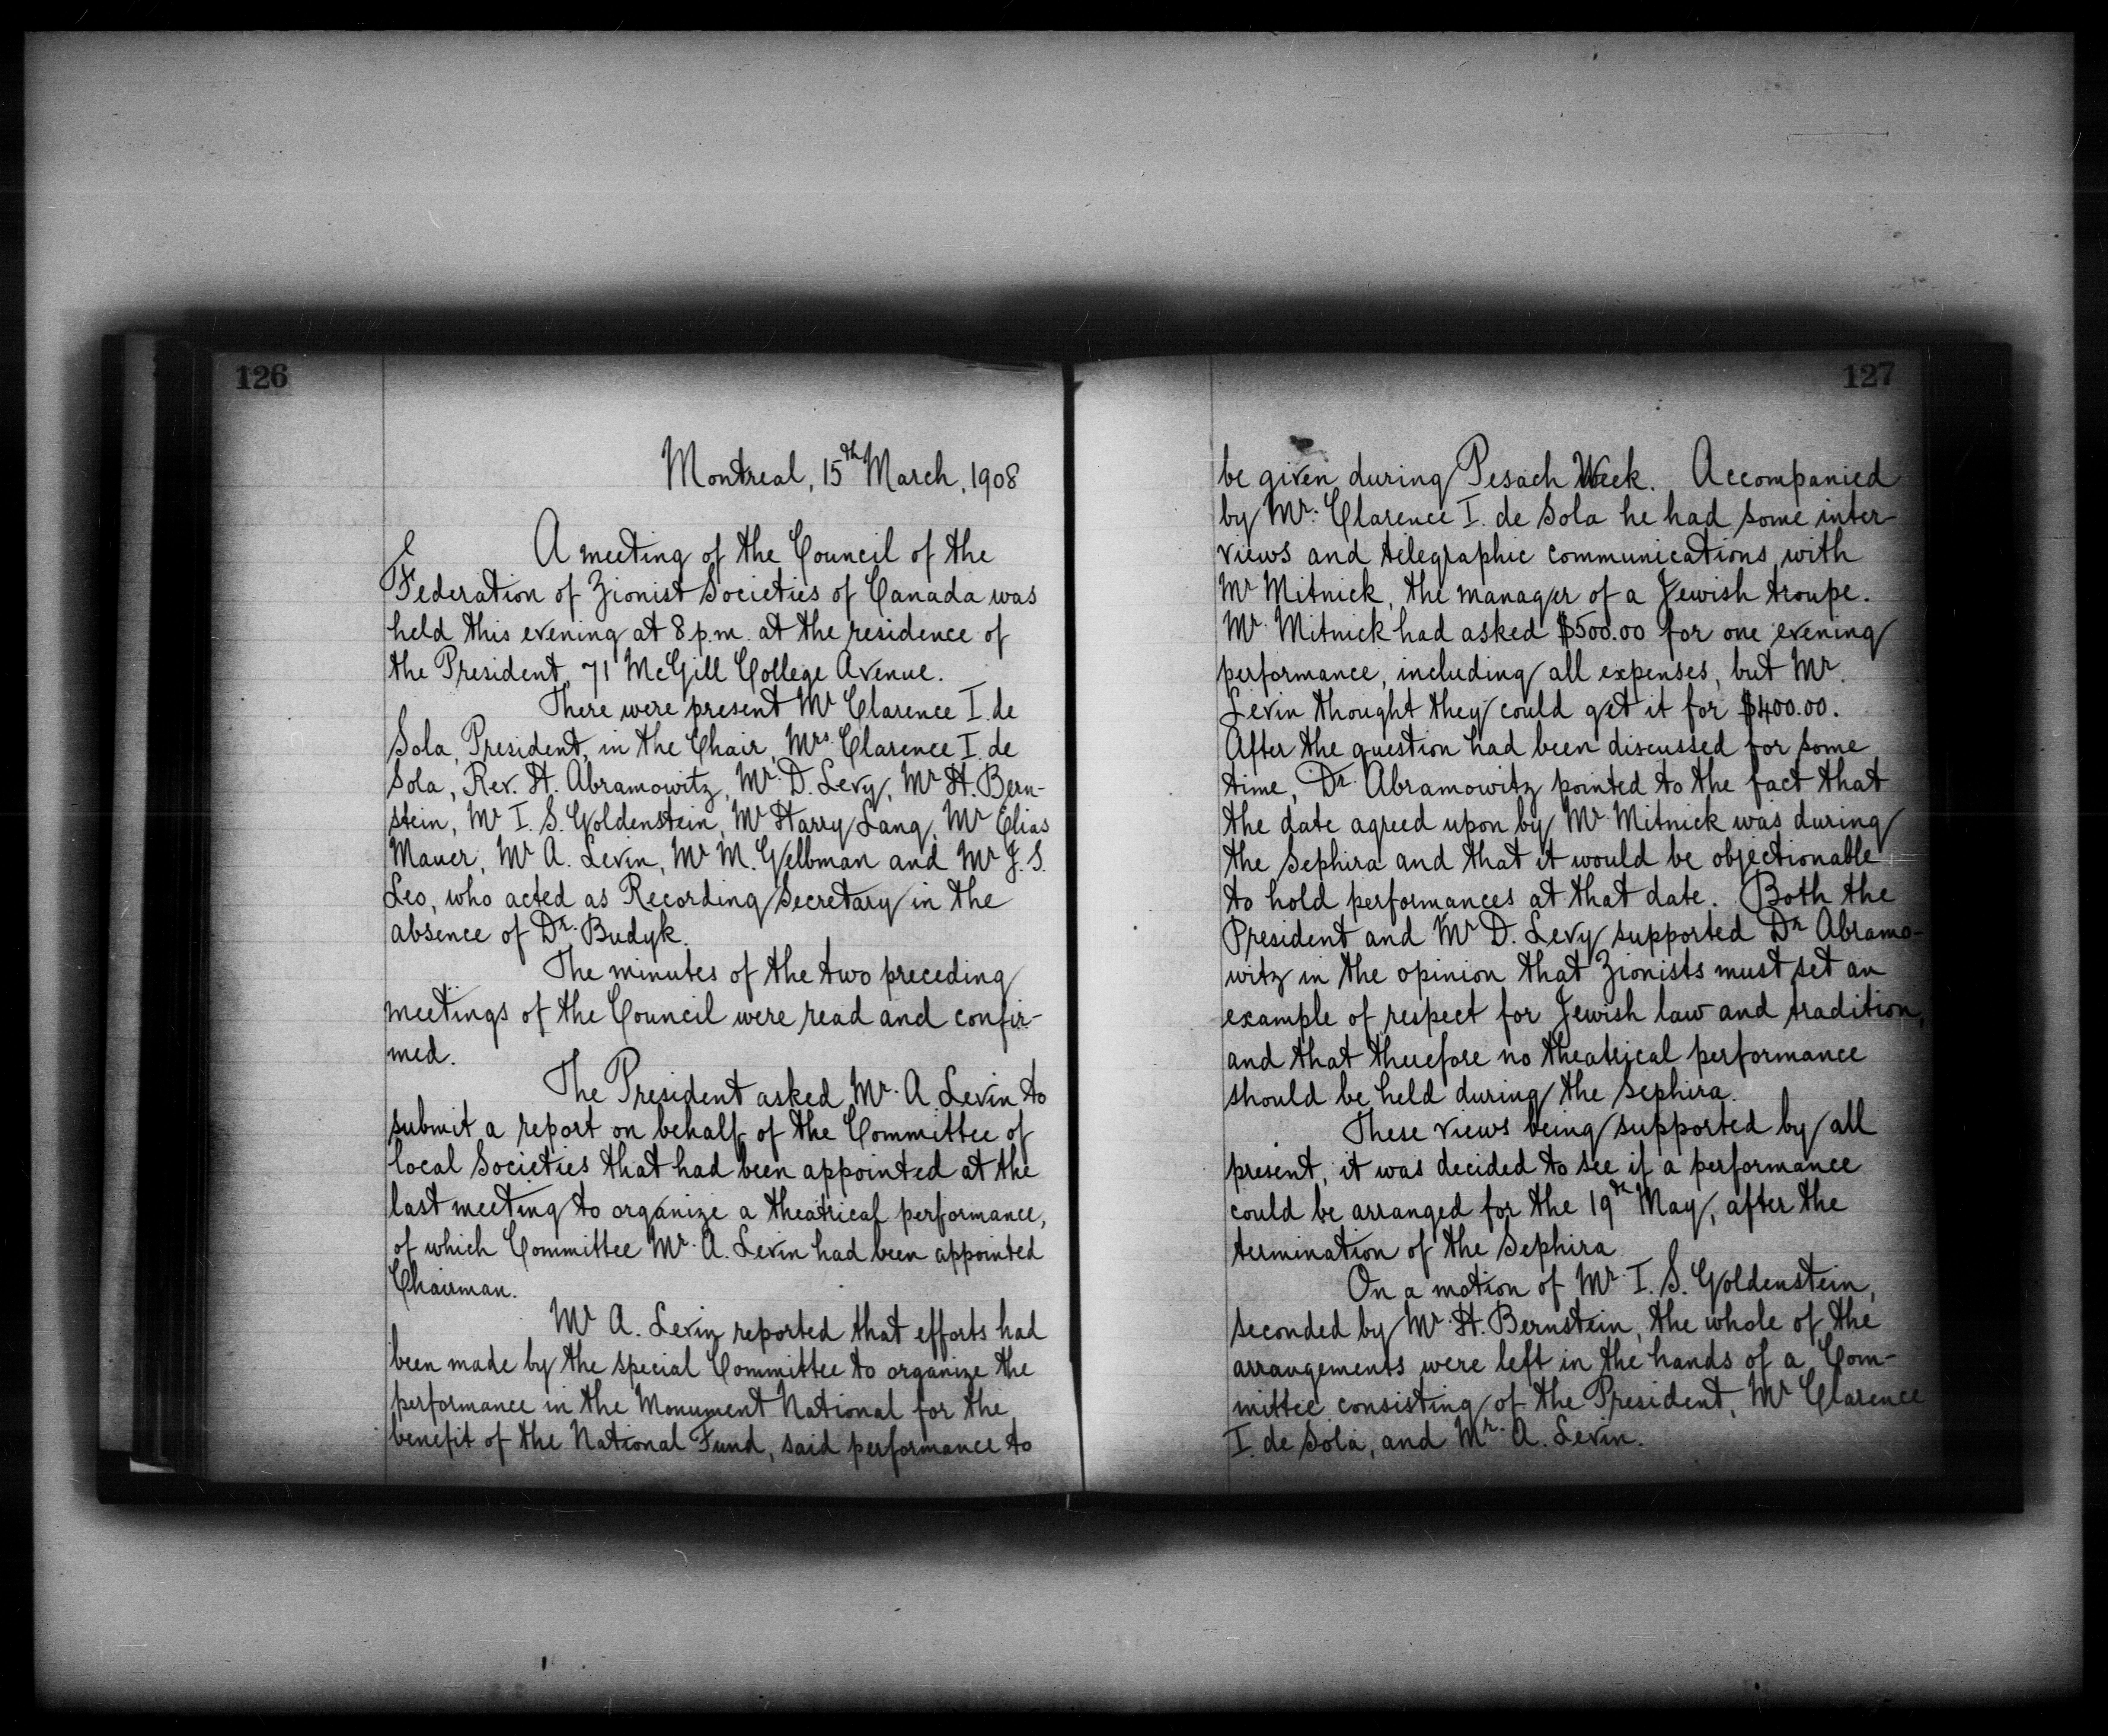 126
Montreal, 15th March, 1908
A meeting of the Council of the
Federation of Zionist Societies of Canada was
held this evening at 8 p.m. at the residence of
the President, 71 McGill College Avenue.
There were present Mr Clarence I. de
Sola, President, in the Chair, Mrs. Clarence I. de
Sola, Rev. H. Abramowitz, Mr. D. Levy, Mr H. Bern-
stein, Mr I. S. Goldenstein, Mr Harry Lang, Mr Elias
Mauer, Mr A. Levin, Mr M. Gelbman and Mr J. S.
Leo, who acted as Recording Secretary in the
absence of Dr. Budyk.
The minutes of the two preceding
meetings of the Council were read and confir-
med.
The President asked Mr. A. Levin to
submit a report on behalf of the Committee of
local Societies that had been appointed at the
last meeting to organize a theatrical performance,
of which Committee Mr. A. Levin had been appointed
Chairman.
Mr A. Levin reported that efforts had
been made by the special Committee to organize the
performance in the Monument National for the
benefit of the National Fund, said performance to
127
be given during Pesach Week. Accompanied
by Mr. Clarence I. de Sola he had some inter-
views and telegraphic communications with
Mr Mitnick, the manager of a Jewish troupe.
Mr. Mitnick had asked $500.00 for one evening
performance, including all expenses, but Mr.
Levin thought they could get it for $400.00.
After the question had been discussed for some
time, Dr. Abramowitz pointed to the fact that
the date agreed upon by Mr. Mitnick was during
the Sephira and that it would be objectionable
to hold performances at that date. Both the
President and Mr D. Levy supported Dr Abramo-
witz in the opinion that Zionists must set an
example of respect for Jewish law and tradition,
and that therefore no theatrical performance
should be held during the Sephira.
These views being supported by all
present, it was decided to see if a performance
could be arranged for the 19th May, after the
termination of the Sephira
On a motion of Mr. I. S. Goldenstein,
seconded by Mr. H. Bernstein, the whole of the
arrangements were left in the hands of a Com-
mittee consisting of the President, Mr Clarence
I. de Sola, and Mr. A. Levin.